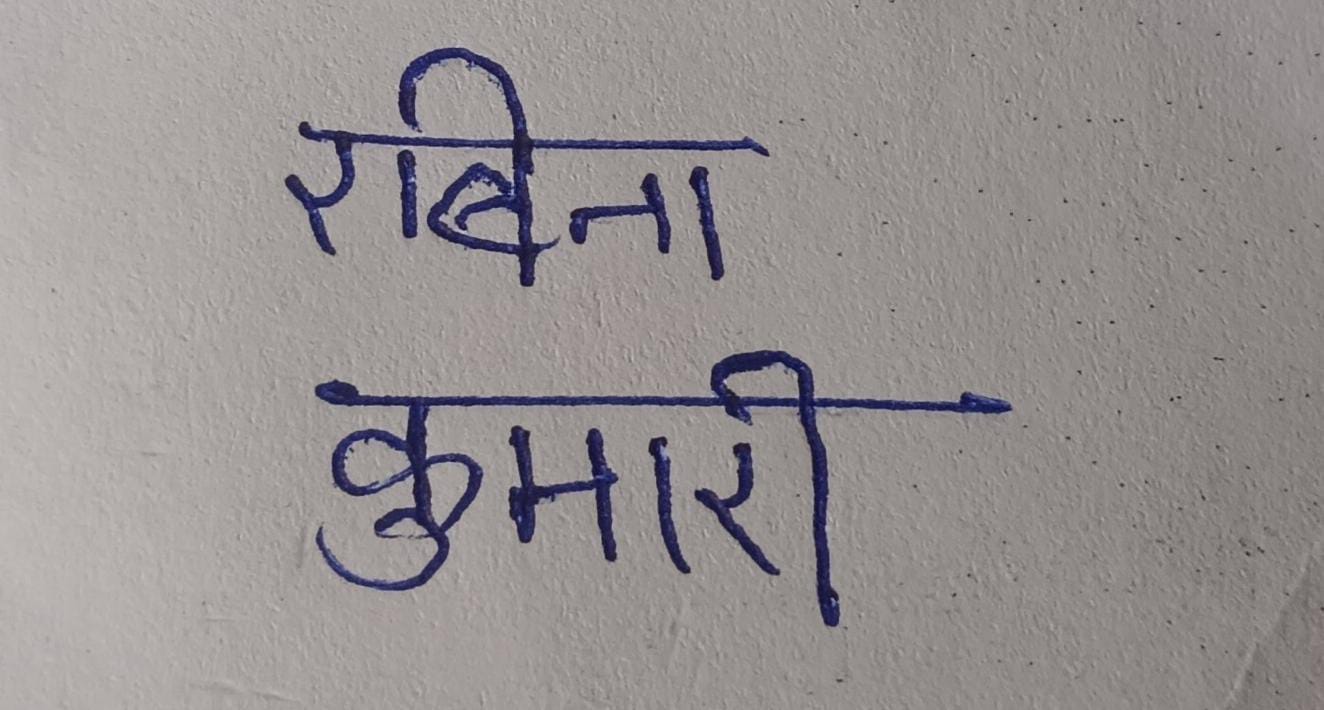 रविना
कुमारी